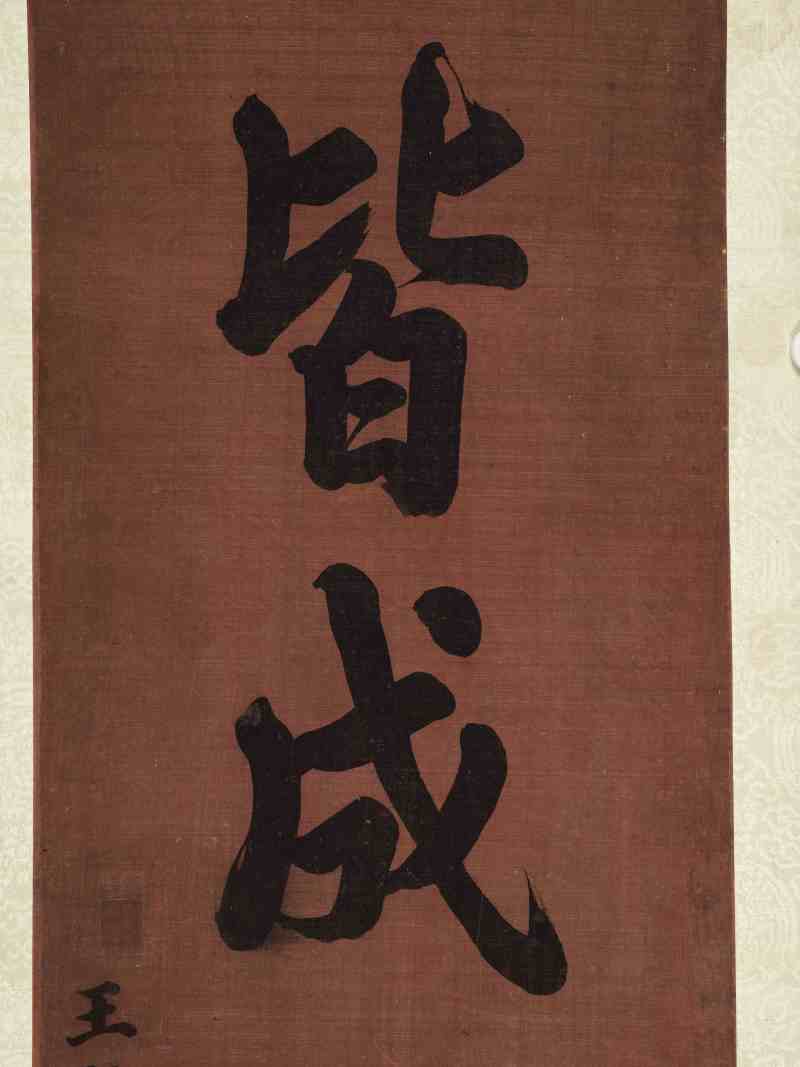 皆成
王